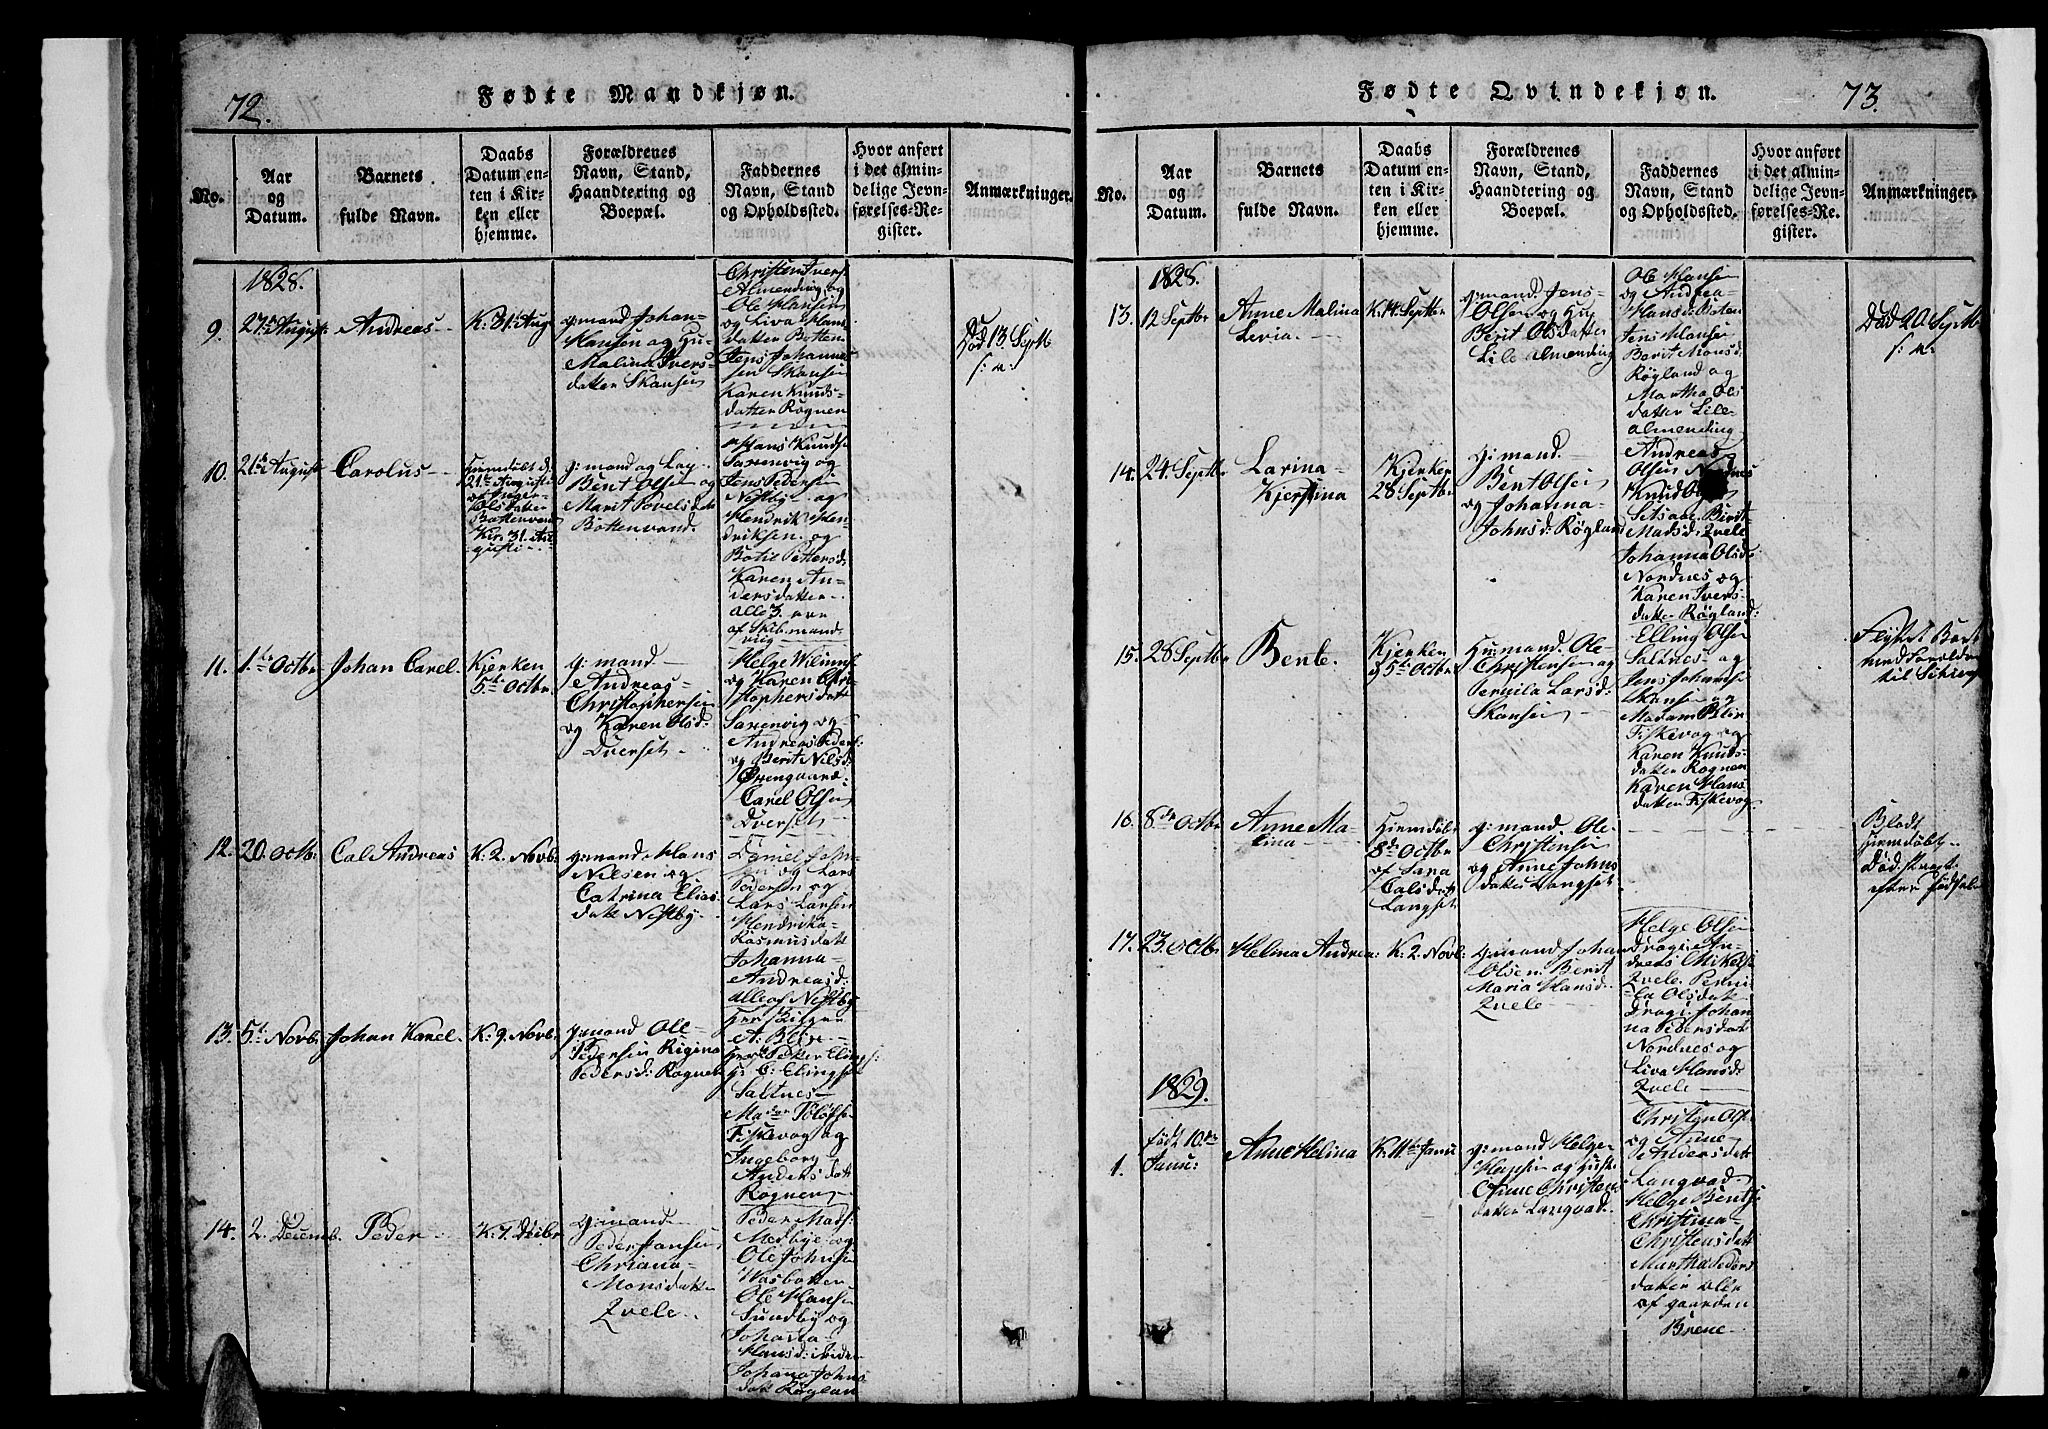 72.
Fødte Mandkjøn.
No.
Aar
og
Datum.
Barnets
fulde Navn.
Daabs
Datum en-
ten i Kir-
ken eller
hjemme.
Forældrenes
Navn, Stand,
Haandtering og
Boepæl.
Faddernes
Navn, Stand
og Opholdssted.
Hvor anført
i det almin-
delige Jevn-
førelses-Re-
gister.
Anmærkninger.
1828.
9.
27de August
Andreas
K: 31te Aug
gmand Johan
Hansen og Hu
Malina Ivers
datter Skansen
Christen Ivers
Almending og
Ole Hansen
og Liva Hans
datter Botten
Jens Johannes
sen Skansen
Karen Knuds
datter Rognen
Død 13 Septb
10.
21de August
Carolus
Hiemdøbt d.
21de Augusti
af Inger
Olsdatter
Bottenvand
Kir. 31. Au
gusti
g: mand og Lag
Bent Olsen og
Marit Povelsdat
Bottenvand.
Hans Knuds
Saxenvig og
Jens Pedersen
Nestbye og
Hendrik Hen
driksen og
Botil Pettersd
Karen An
dersdatter
alle 3
af Skib mand
vig
11.
1te Octbr
Johan Carel
Kjerken
5te Octbr
g: mand
Andreas
Christophersen
og Karen Olsd:
Dverset
Helge Wilum
og Karen Chri
stophersdatt
Saxenvig og
Andreas Peders:
og Berit Nilsd:
Øvrengaard
Carel Olsen
Dverset
12.
20. Octb:
Cal Andreas
K: 2. Novb:
g: mand Hans
Nilsen og
Catrina Elias
datt Nestby
Daniel John
sen og Lars
Pedersen og
Lars Larsen
Hendrika
Rasmusdatt
Johanna
Andreasd:
alle af Nestby
13.
5te Novb.
Johan Karel
K: 9. Novb:
g: mand Ole
Pedersen Rigina
Pedersd: Rognen
A: Blix
Peter Elings
Elingsen
Saltnes
Fiskevog og
Ingeborg
Andersdatt
Rognen
14.
2. Decemb.
Peder
K. 7. Decbr
g: mand
Peder Jansen
Chriana
Monsdatter
Qvele
Peder Mads:
Medbye og
Ole Johnsen
Wasbotten
Ole Hansen
Sundby og
Johanna
Hansd: ibiden
Johana Johns
datt Røglan
73.
Fødte Qvindekjøn.
No.
Aar
og
Datum.
Barnets
fulde Navn.
Daabs
Datum en-
ten i Kir-
ken eller
hjemme.
Forældrenes
Navn, Stand,
Haandtering og
Boepæl.
Faddernes
Navn, Stand
og Opholdssted.
Hvor anført
i det almin-
delige Jevn-
førelses-Re-
gister.
Anmærkninger.
1828.
13.
12 Septbr
Anne Malina
Levia
K. 14 Septbr
g: mand Jens
Olsen og Hu
Berit Olsdatter
Lile Almending
Ole Hansen
og Andrea
Hansd: Boten
Jens Hansen
Berit Monsd:
Røgland og
Martha Ols
datter Lile
almending
Død 20 Septb
14.
24. Septbr
Larina
Kjerstina
Kjerken
28 Septbr
g: mand
Bent Olsen
og Johanna
Johnsd: Røgland
Andreas
Olsen Nordnes
Knud Ols
Setsaae Birit
Madsd: Qvele
Johanna Olsd:
Nordnes og
Karen Ivers
datter Røgland:
15.
28 Septbr
Bente.
Kjerken
5te Octbr
Husmand Ole
Christensen og
Pernila Larsd:
Skansen
Elling Olsen
Saltnes og
Jens Johanse
Skansen og
Madam Blix
Fiskevog og
Karen Knuds
datter Rognen
Karen Hans
datter Fiskevog
16.
8de Octbr
Anne Ma
lina
Hiemdøbt
8de Octbr
af Sara
Calsdatt
Langset
g: mand Ole
Christensen
og Anne Johns
datter Langset
Blodt
hiemdøbt
Død strax
efter Fødsele
17.
23. Octbr
Helina Andrea:
K: 2. Novb:
g: mand Johan
Olsen: Berit
Maria Hansd:
Qvele
Helge Olsen
Dragi: An
dreas Mikels
Qvele Perni
la Olsdatt
Dragi: Johan
na Pedersdatt
Nordnes og
Liva Hansd:
Qvele
1829.
1.
født 10de
Janu:
Anne Helina
K: 11te Janu
g: mand Helge
Hansen og Hust
Anne Christens
datter Langvad.
Christen Olsen
og Anne
Andersdatt
Langvad
Helge Bents
Christina
Christensdatt
Martha Peders
datter alle
af gaarden
Brene